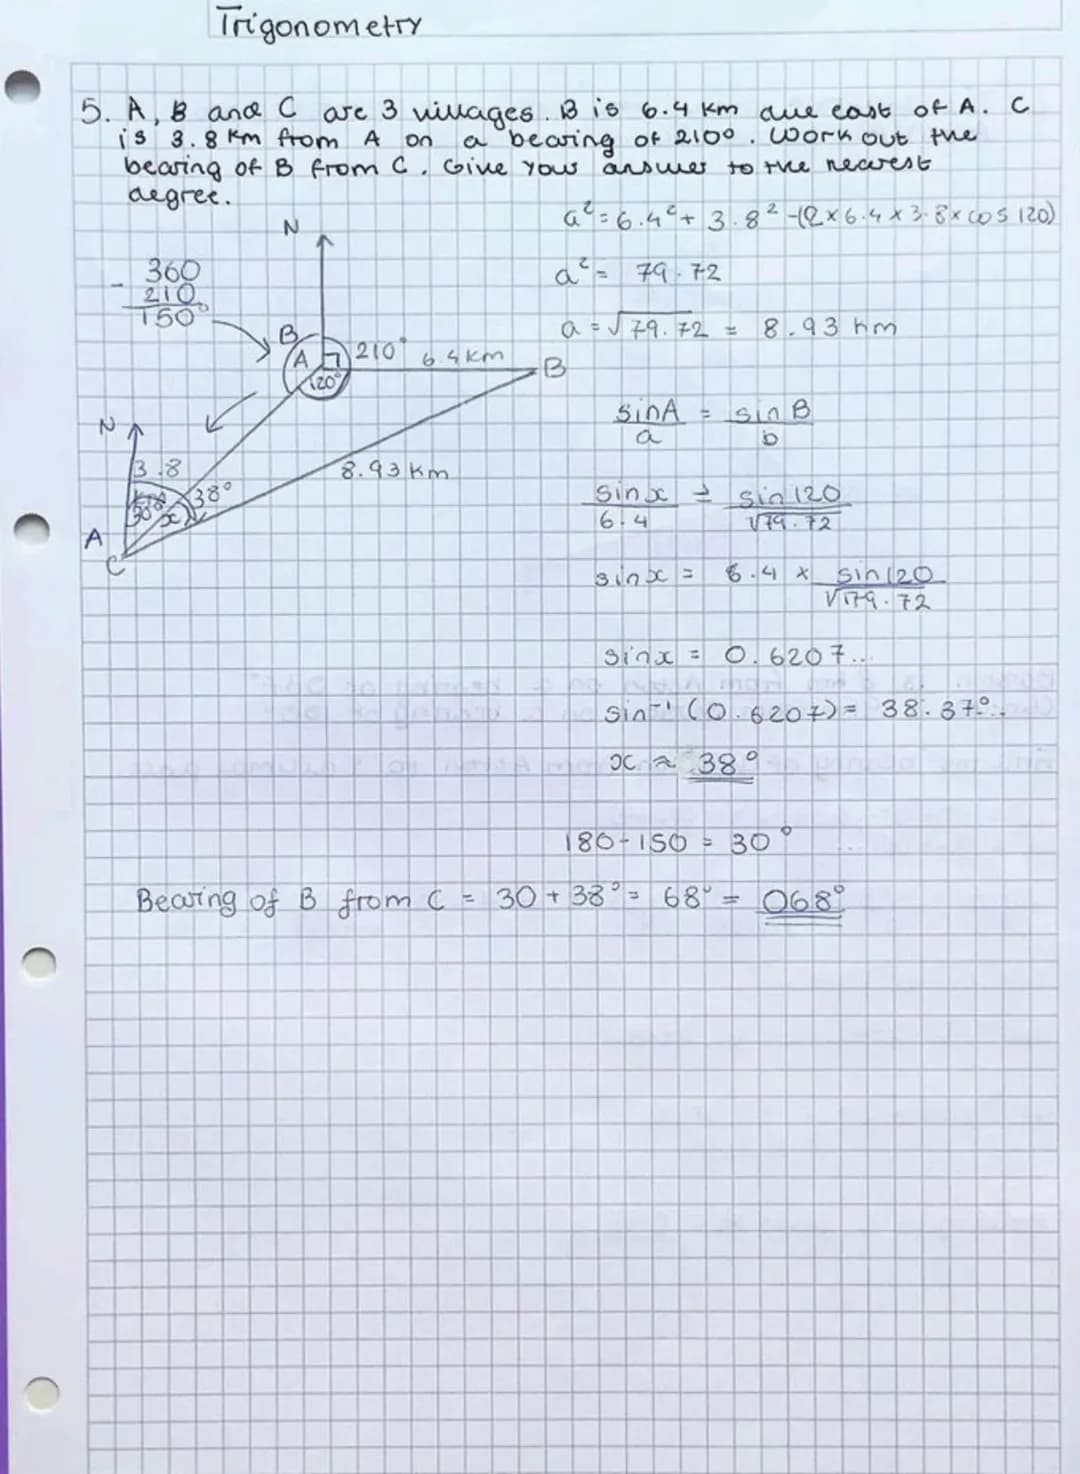 Trigonometry
5. A, B and C are 3 villages. B is 6.4 km due east of A. C
is 3.8 km from A on a bearing of 210°. Work out the
bearing of B from C. Give your answer to the nearest
degree.
a² = 6.4² + 3.8² -(2 × 6.4 × 3.8 × cos 120)
N
360
- 210
150°
a² = 79.72
a = √79.72 = 8.93 km
B
A
210°
6.4km
B
120°
sinA = sin B
a b
N
3.8
km
8.93 km
38°
30°
x
sin x = sin 120
6.4 √79.72
A
C
sin x = 6.4 × sin 120
√79.72
sin x = 0.6207...
sin⁻¹ (0.6207) = 38.37°..
x ≈ 38°
180-150 = 30°
Bearing of B from C = 30 + 38° = 68° = 068°